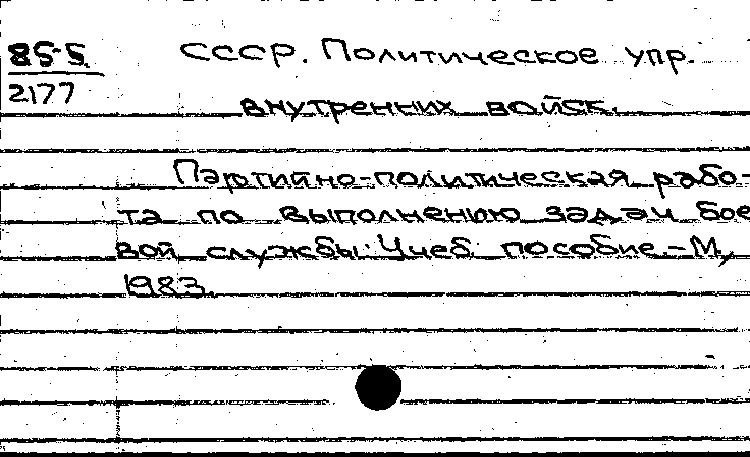 85-5 СССР. Политическое упр.
2177
внутренних войск.
Партийно-политическая рабо-
та по выполнению задач бое
вой службы: Учеб. пособие.-М,
1983.